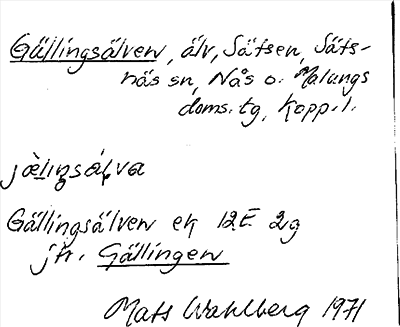 Gällingsälven, älv, Sätsen, Säts-
näs sn, Nås o. Malungs
doms.tg, Kopp.l.
jæ̀lingsálva
Gällingsälven ek 12E 2g
jfr. Gällingen
Mats Wahlberg 1971